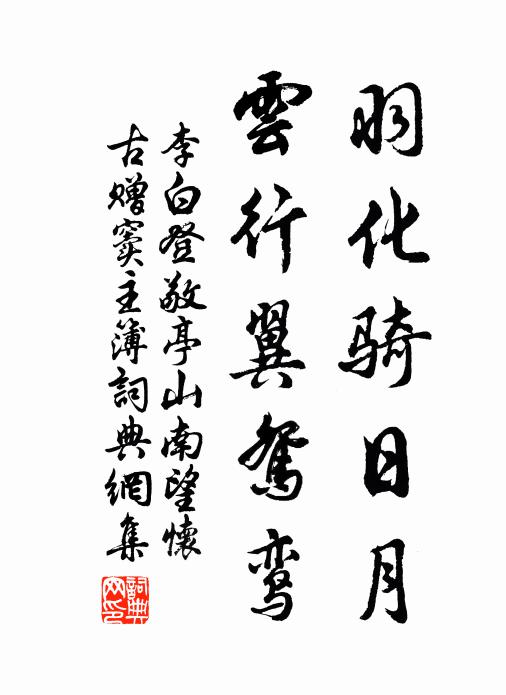 羽化骑日月
雲行翼鴛鸾
李白登敬亭山南望懷
古贈竇主簿詞典網集
詞典网印